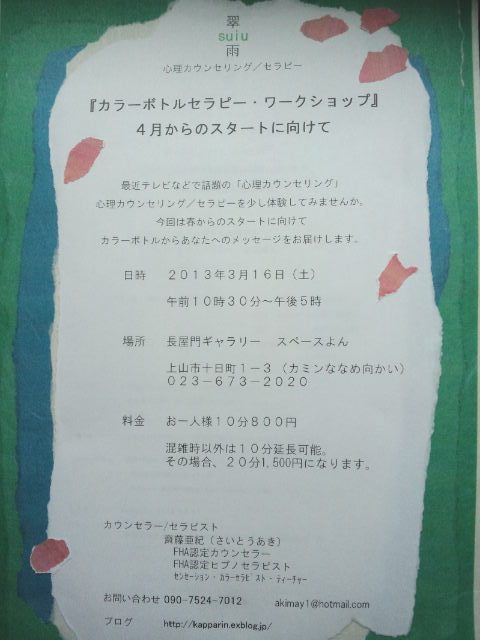 翠
suiu
雨
心理カウンセリング／セラピー
『カラーボトルセラピー・ワークショップ』
４月からのスタートに向けて
最近テレビなどで話題の「心理カウンセリング」
心理カウンセリング／セラピーを少し体験してみませんか。
今回は春からのスタートに向けて
カラーボトルからあなたへのメッセージをお届けします。
日時　２０１３年３月１６日（土）
午前１０時３０分～午後５時
場所　長屋門ギャラリー　スペースよん
上山市十日町１－３（カミンななめ向かい）
０２３－６７３－２０２０
料金　お一人様１０分８００円
混雑時以外は１０分延長可能。
その場合、２０分1,500円になります。
カウンセラー/セラピスト
斎藤亜紀（さいとうあき）
FHA認定カウンセラー
FHA認定ヒプノセラピスト
ｾﾝｾｰｼｮﾝ・ｶﾗｰｾﾗﾋﾟｽﾄ・ﾃｨｰﾁｬｰ
お問い合わせ 090-7524-7012　akimay1@hotmail.com
ブログ　http://kapparin.exblog.jp/